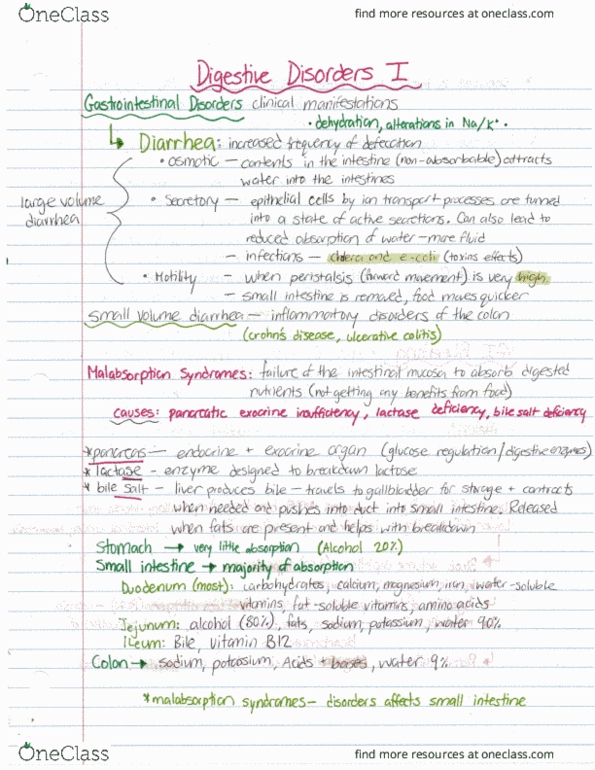 OneClass
find more resources at oneclass.com
Digestive Disorders I
Gastrointestinal Disorders clinical manifestations
• dehydration, alterations in Na/K+ •
Diarrhea: increased frequency of defecation
• osmotic – contents in the intestine (non-absorbable) attracts
water into the intestines
large volume
diarrhea
• Secretory – epithelial cells by ion transport processes are turned
into a state of active secretions. Can also lead to
reduced absorption of water – more fluid
– infections – cholera and e-coli (toxins effects)
• Motility – when peristalsis (forward movement) is very high
– small intestine is removed, food moves quicker
Small volume diarrhea – inflammatory disorders of the colon
(crohn's disease, ulcerative colitis)
Malabsorption Syndromes: failure of the intestinal mucosa to absorb digested
nutrients (not getting any benefits from food)
causes: pancreatic exocrine insufficiency, lactase deficiency, bile salt deficiency
*pancreas – endocrine + exocrine organ (glucose regulation/digestive enzymes)
*lactase – enzyme designed to breakdown lactose
*bile salt – liver produces bile – travels to gallbladder for storage + contracts
when needed and pushes into duct into small intestine. Released
when fats are present and helps with breakdown
Stomach → very little absorption (Alcohol 20%)
Small intestine → majority of absorption
Duodenum (most): carbohydrates, calcium, magnesium, iron, water-soluble
vitamins, fat-soluble vitamins, amino acids
Jejunum: alcohol (80%), fats, sodium, potassium, water 90%
Ileum: Bile, vitamin B12
Colon → sodium, potassium, Acids + bases, water 9%
*malabsorption syndromes – disorders affects small intestine
OneClass
find more resources at oneclass.com